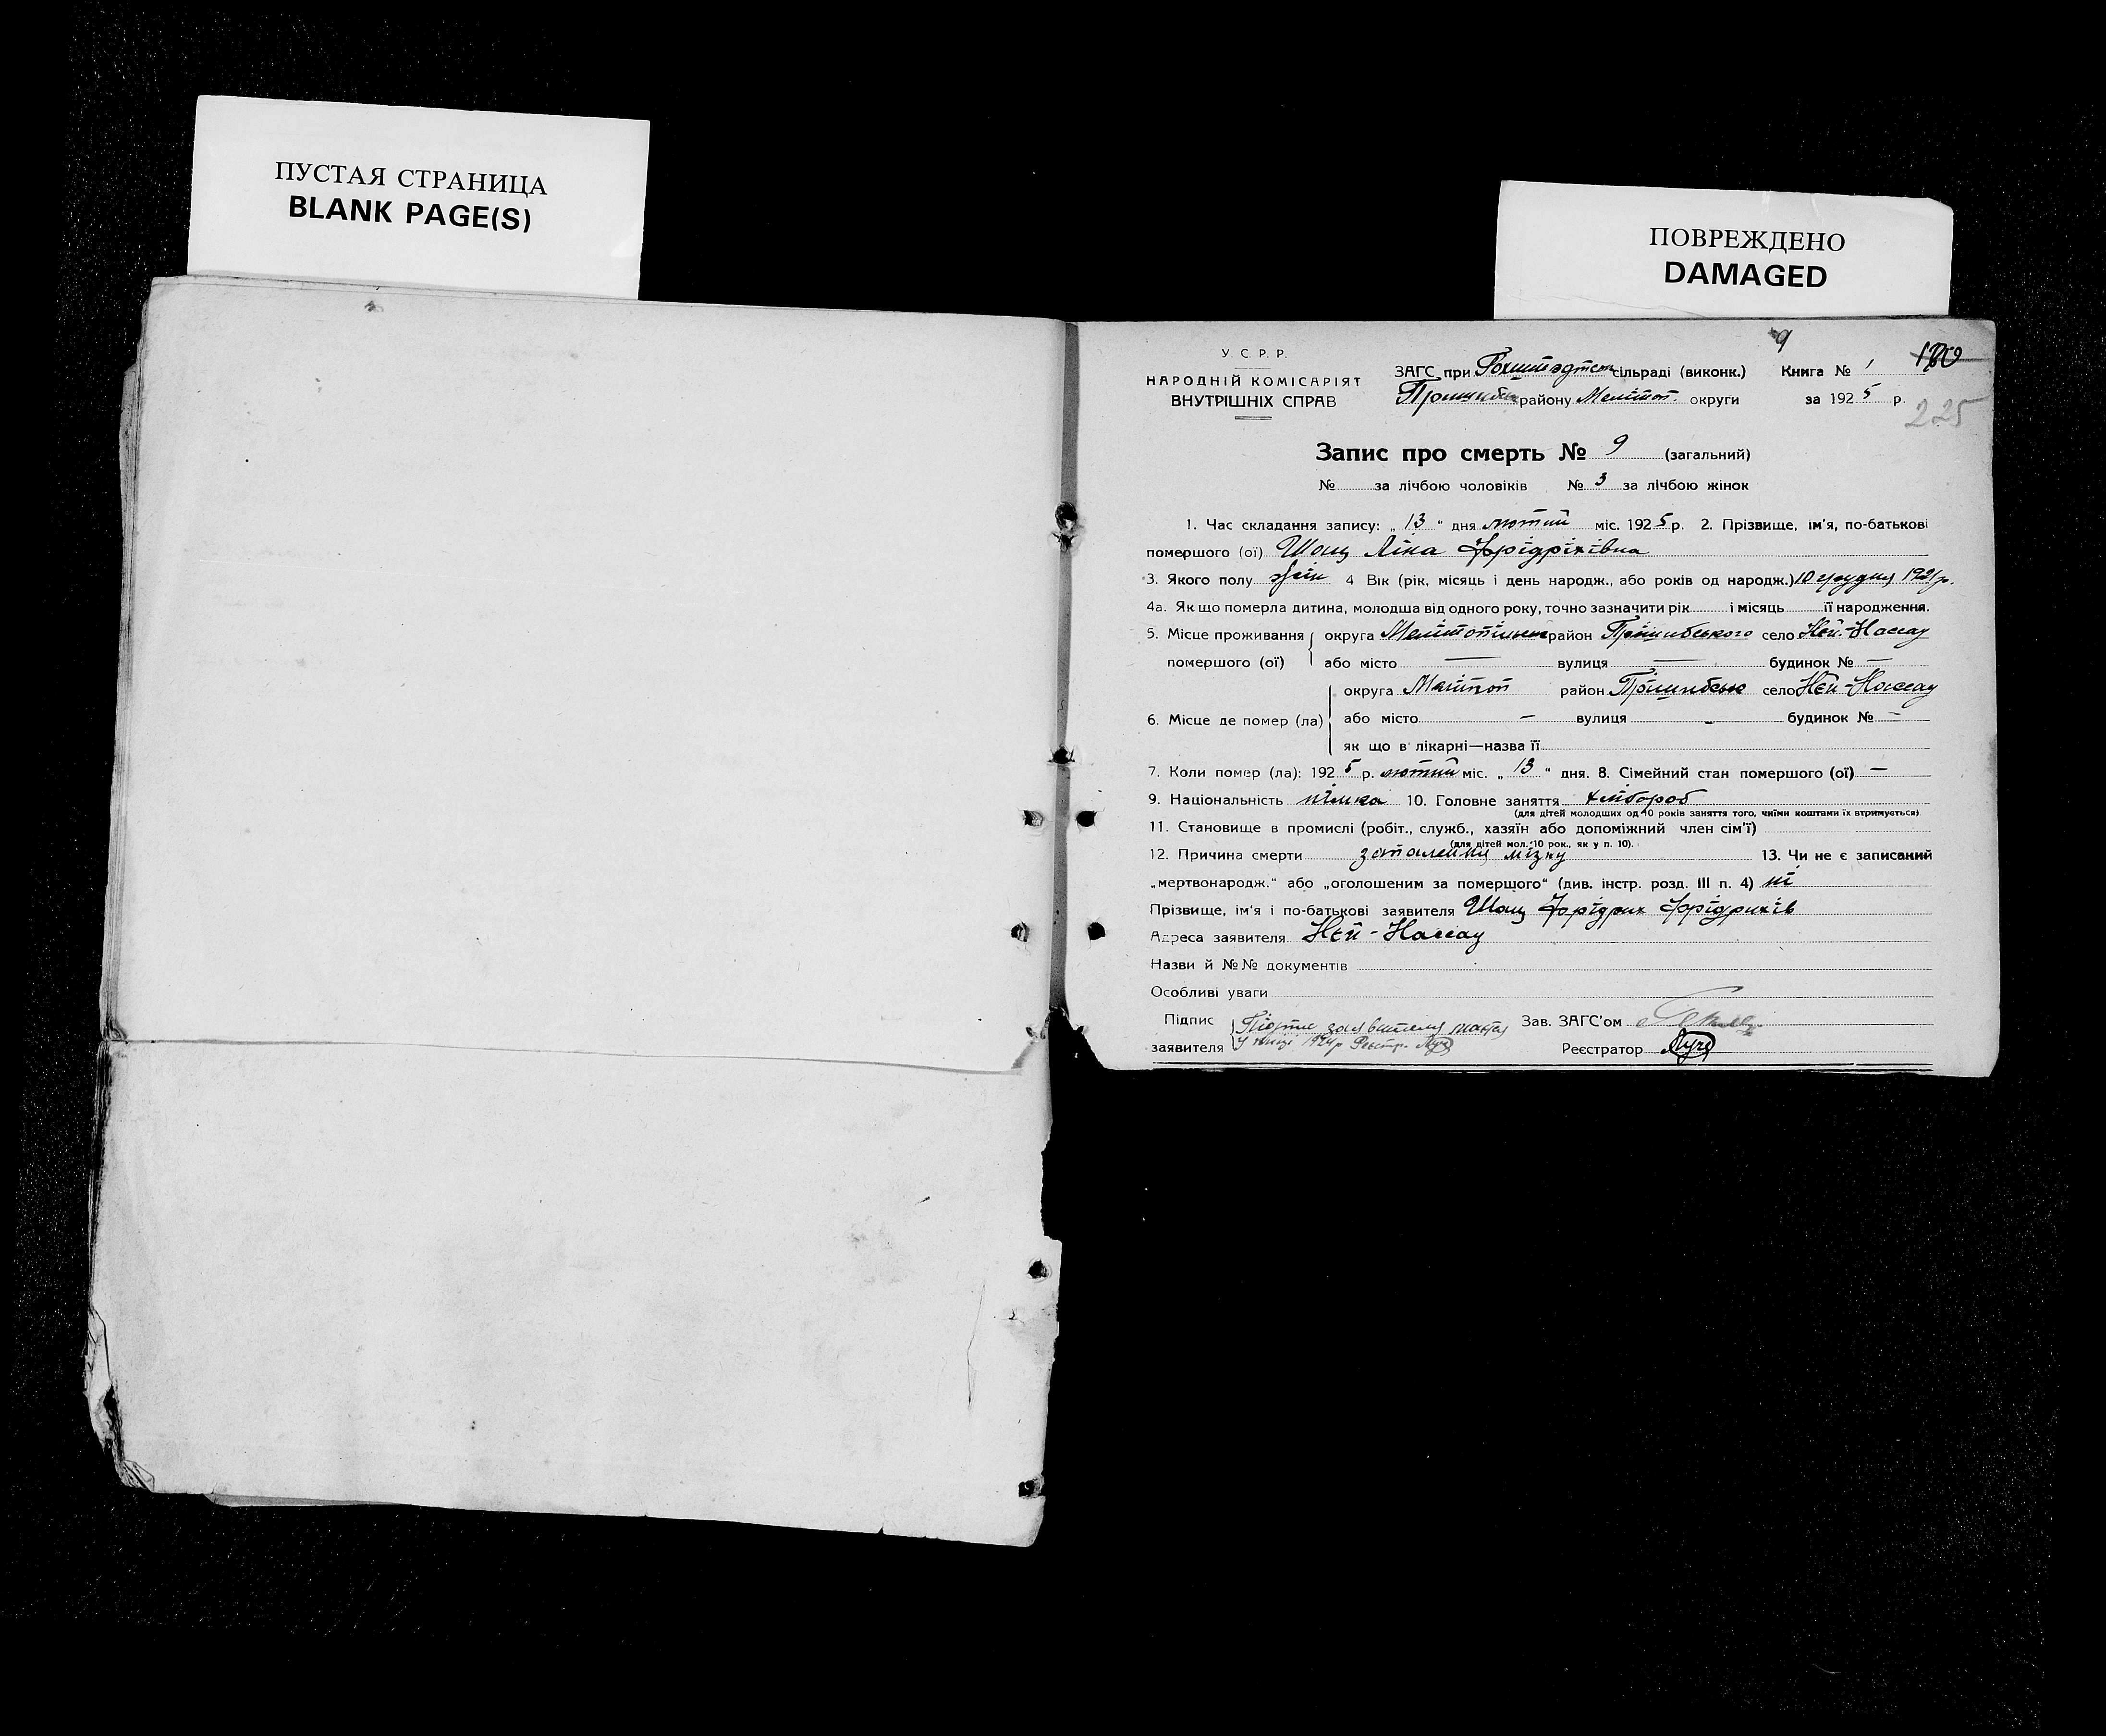 ПУСТАЯ СТРАНИЦА
BLANK PAGE(S)
ПОВРЕЖДЕНО
DAMAGED
9
У. С. Р. Р.
НАРОДНІЙ КОМІСАРІЯТ
ВНУТРІШНІХ СПРАВ
ЗАГС при сільраді (виконк.) Книга № 1
району Меліпоп. округи за 1925 р.
225
Запис про смерть № 9 (загальний)
№ за лічбою чоловіків № 3 за лічбою жінок
1. Час складання запису: „ 13 “ дня лютий міс. 1925 р. 2. Прізвище, ім'я, по-батькові
помершого (ої) Шац Ліна Фрідріхівна
3. Якого полу жін 4 Вік (рік, місяць і день народж., або років од народж.) 10 грудня 1921 р.
4а. Як що померла дитина, молодша від одного року, точно зазначити рік і місяць її народження.
5. Місце проживання округа район Пришибського село Ней-Нассау
помершого (ої) або місто — вулиця — будинок № —
округа Меліпоп район село Ней-Нассау
6. Місце де помер (ла) або місто — вулиця — будинок № —
як що в лікарні—назва її
7. Коли помер (ла): 1925 р. лютий міс. „ 13 “ дня. 8. Сімейний стан помершого (ої) —
9. Національність німка 10. Головне заняття хлібороб
(для дітей молодших од 10 років заняття того, чиїми коштами їх втримується)
11. Становище в промислі (робіт., служб., хазяїн або допоміжний член сім'ї)
(для дітей мол. 10 рок., як у п. 10).
12. Причина смерти запалення мізку 13. Чи не є записаний
„мертвонародж.“ або „оголошеним за помершого“ (див. інстр. розд. III п. 4) ні
Прізвище, ім'я і по-батькові заявителя Шац Фрідрих Фрідрихів
Адреса заявителя Ней-Нассау
Назви й №№ документів
Особливі уваги
Підпис заявителя Зав. ЗАГС'ом
заявителя 1924 р Реєстр. Реєстратор